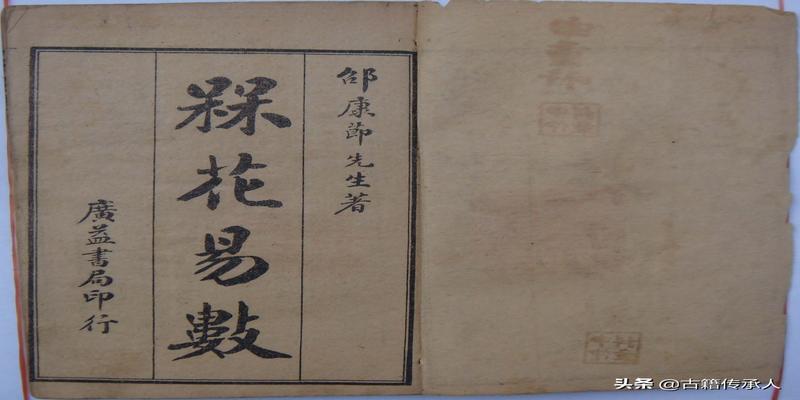 邵康節先生著
槑花易數
廣益書局印行
头条 @古籍传承人